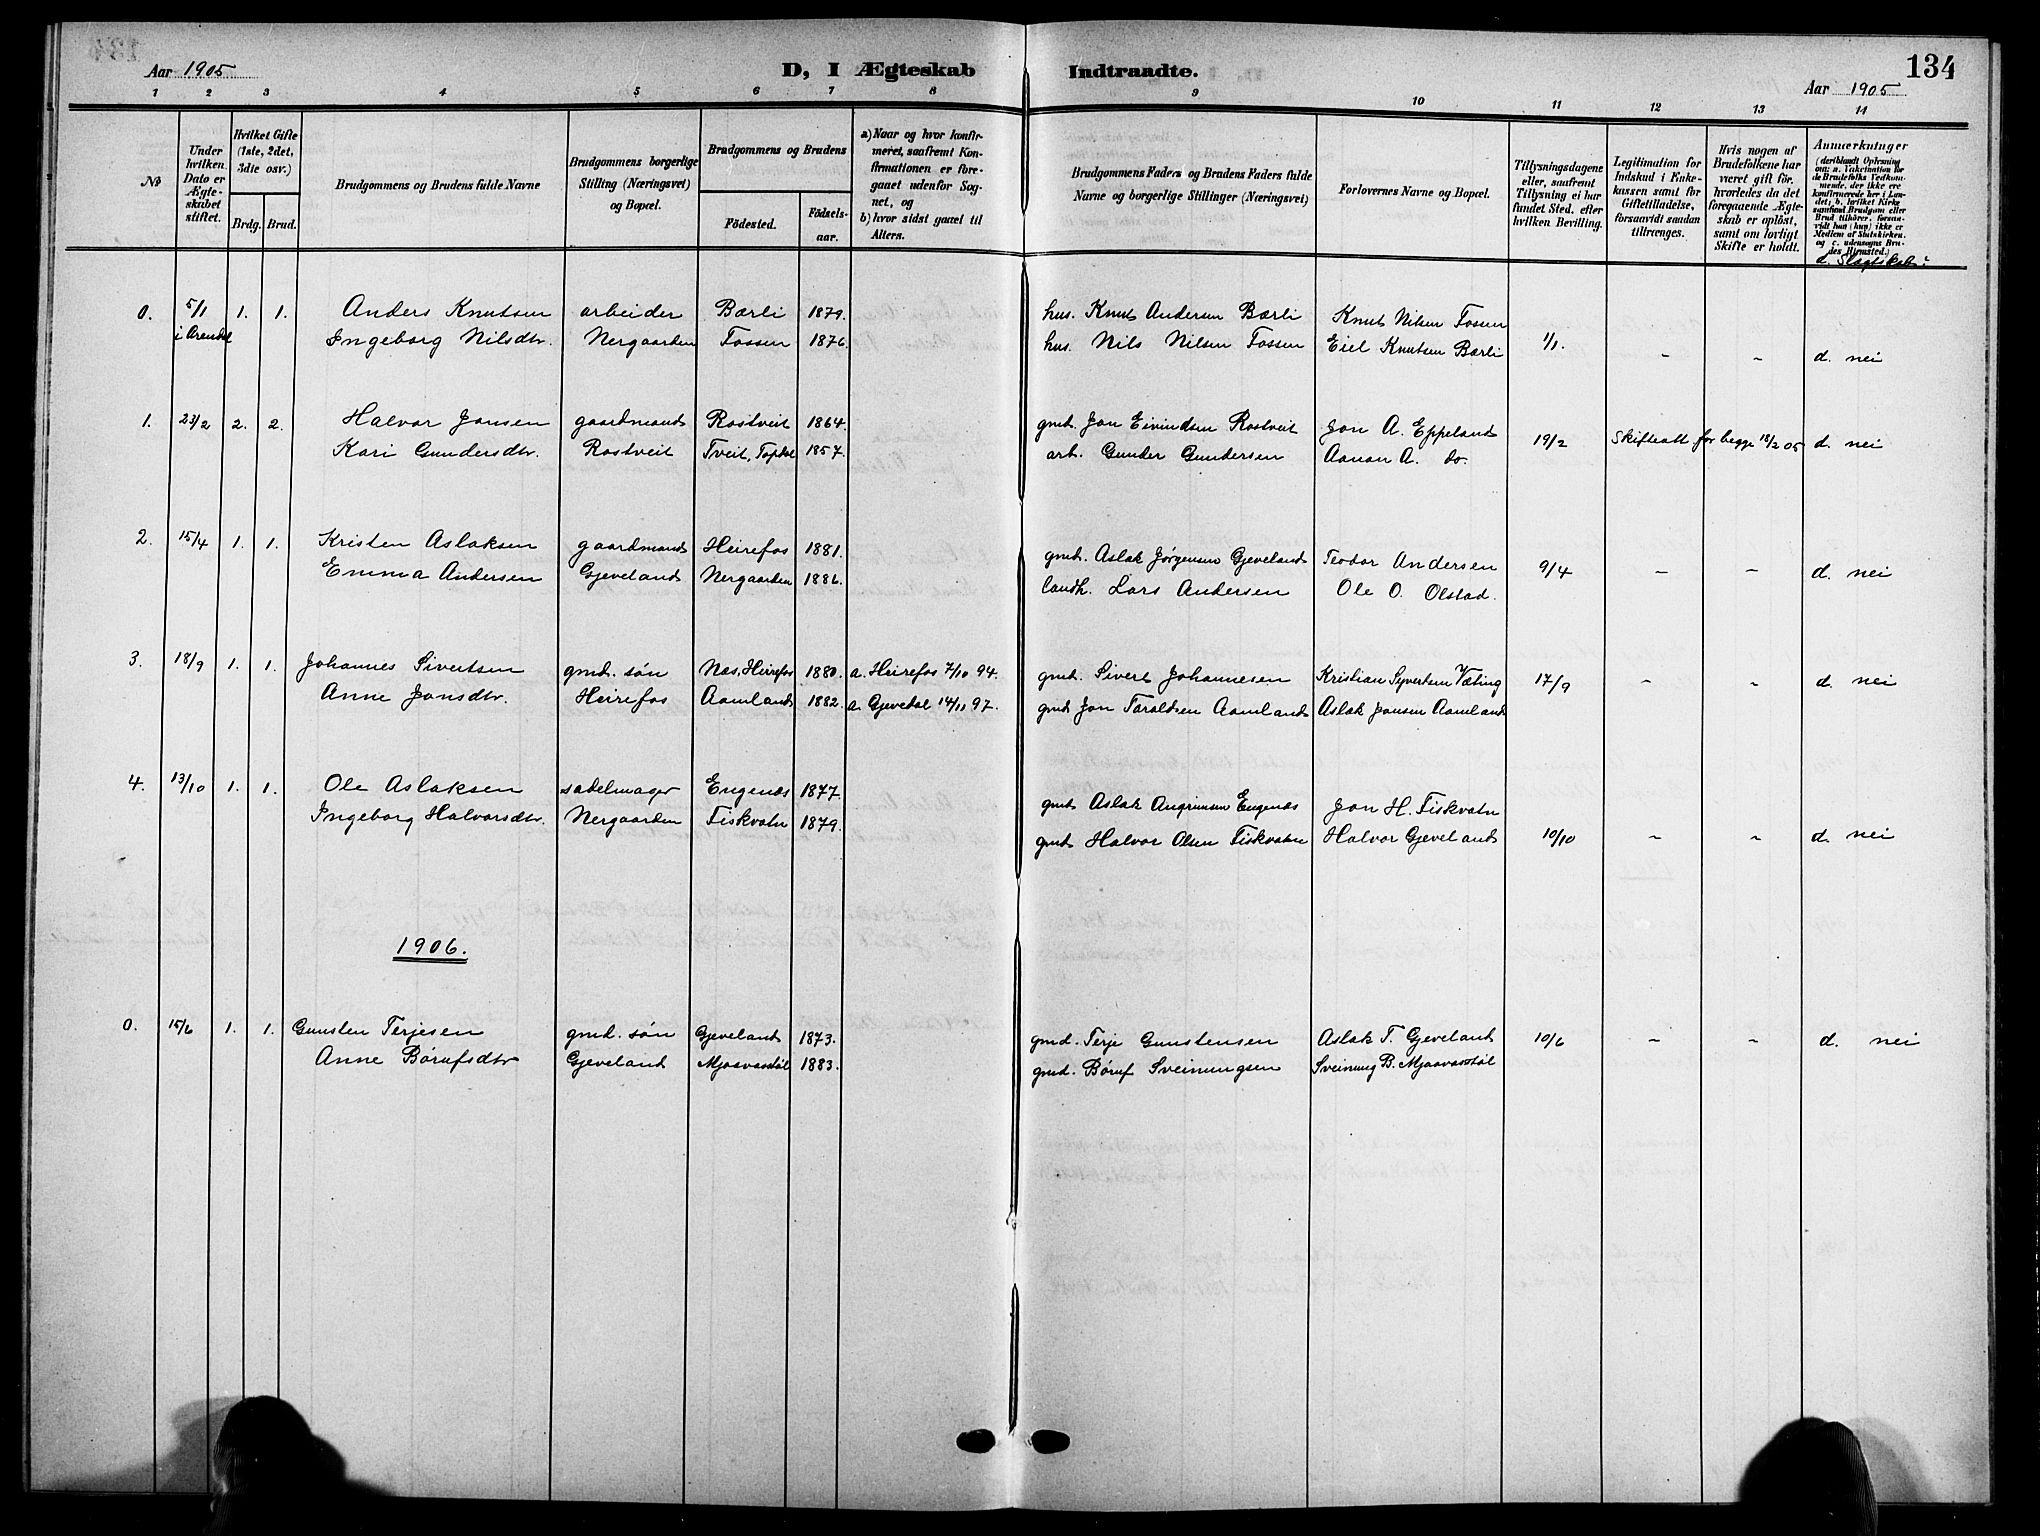 134
Aar 1905
D, I Ægteskab Indtraadte.
Aar 1905
1 2 3 4 5 6 7 8 9 10 11 12 13 14
№
Under hvilken Dato er Ægteskabet stiftet.
Hvilket Gifte (1ste, 2det, 3die osv.)
Brdg. Brud.
Brudgommens og Brudens fulde Navne
Brudgommens borgerlige Stilling (Næringsvei) og Bopæl.
Brudgommens og Brudens
Födested.
Födselsaar.
a) Naar og hvor konfirmeret, saafremt Konfirmationen er foregaaet udenfor Sognet, og
b) hvor sidst gaaet til Alters.
Brudgommens Faders og Brudens Faders fulde Navne og borgerlige Stillinger (Næringsvei)
Forlovernes Navne og Bopæl.
Tillysningsdagene eller, saafremt Tillysning ei har fundet Sted, efter hvilken Bevilling.
Legitimation for Indskud i Enkekassen samt for Giftetilladelse, forsaavidt saadan tiltrænges.
Hvis nogen af Brudefolkene har været gift för, hvorledes da det foregaaende Ægteskab er oplöst, samt om lovligt Skifte er holdt.
Anmærkninger
(deriblandt Oplysning om: a. Vaksination for de Brudefolks Vedkommende, der ikke ere konfirmerede her i Landet; b. hvilket Kirkesamfund Brudgom eller Brud tilhörer, forsaavidt han (hun) ikke er Medlem af Statskirken, og c. udensogns Brudes Hjemsted.)
d. Slagtskab:
0. 5/1 i Arendal 1. 1. Anders Knutsen arbeider Bærli 1879. hus. Knut Andersen Bærli Knut Nilsen Fossen 1/1. - - d. nei
Ingeborg Nilsdtr. Nergaarden Fossen 1876. hus. Nils Nilsen Fossen Eiel Knutsen Bærli
1. 23/2 2. 2. Halvor Jonsen gaardmand Rostveit 1864. gmd. Jon Eivindsen Rostveit Jon A. Eppeland 19/2 Skifteatt for begge 18/2 05 d. nei
Kari Gundersdtr. Rostveit Tveit, Topdal 1857. arb. Gunder Gundersen Aanon A. do.
2. 15/4 1. 1. Kristen Aslaksen gaardmand Heirefos 1881. gmd. Aslak Jørgensen Gjeveland Teodor Andersen 9/4 - - d. nei
Emma Andersen Gjeveland Nergaarden 1886. landh. Lars Andersen Ole O. Olstad.
3. 18/9 1. 1. Johannes Sivertsen gmd. søn Næs, Heirefos 1880. a. Heirefos 7/10 94. gmd. Sivert Johannesen Kristian Syvertsen Væting 17/9 - - d. nei
Anne Jonsdtr. Heirefos Aamland 1882. a. Gjevedal 14/11 97. gmd Jon Taraldsen Aamland Aslak Jonsen Aamland
4. 13/10 1. 1. Ole Aslaksen sadelmager Engenæs 1877. gmd Aslak Angrimsen Engenæs Jon H. Fiskvatn 10/10 - - d. nei
Ingeborg Halvorsdtr. Nergaarden Fiskvatn 1879. gmd Halvor Olsen Fiskvatn Halvor Gjeveland
1906.
0. 15/6 1. 1. Gunsten Terjesen gmd. søn Gjeveland 1873. gmd. Terje Gunstensen Aslak T. Gjeveland 10/6 - - d. nei
Anne Børufsdtr Gjeveland Mjaavasstøl 1883. gmd. Børuf Sveinungsen Sveinung B. Mjaavasstøl